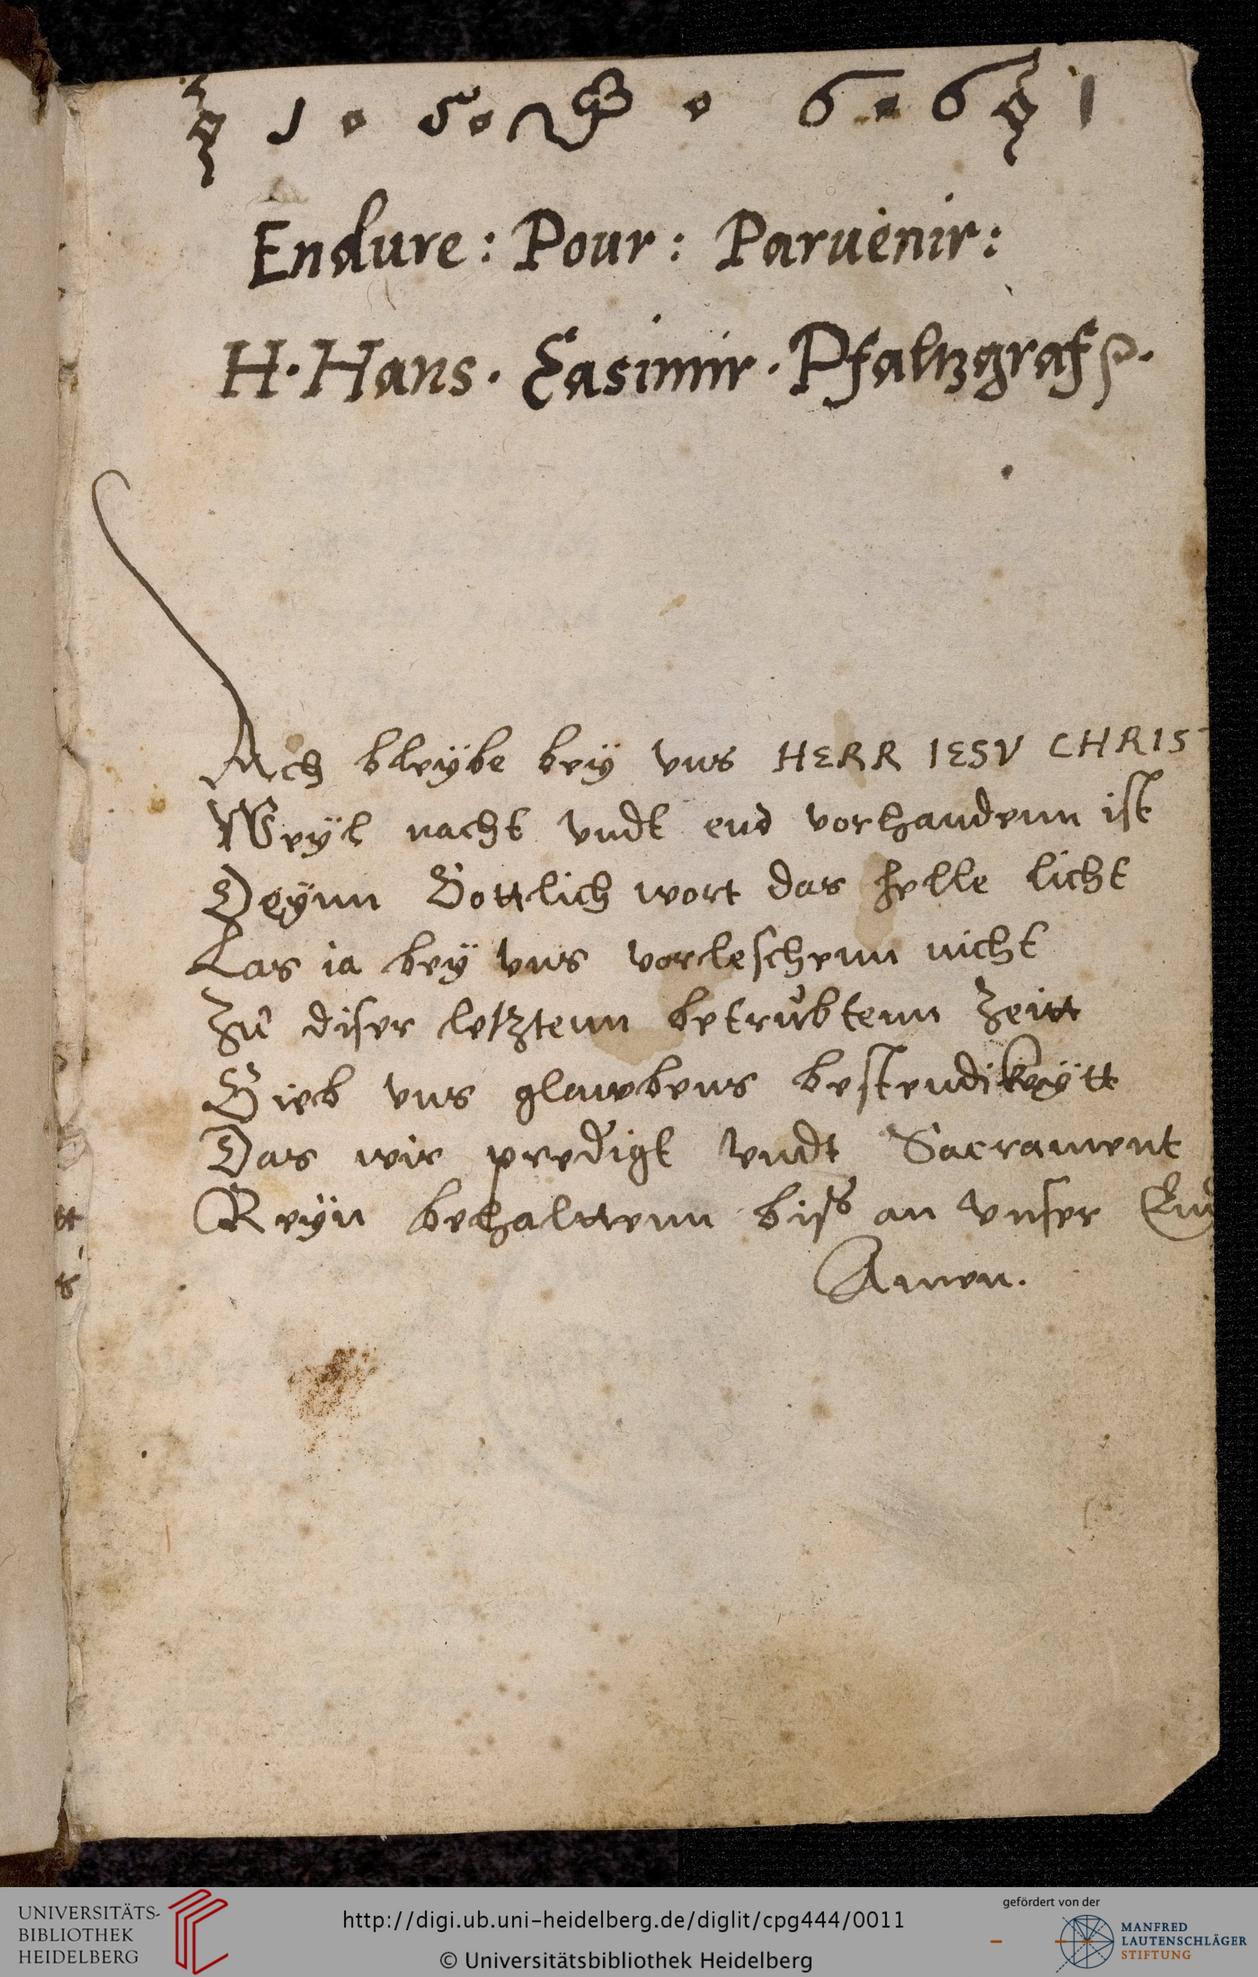 1 · 5 · 6 · 6 1
Endure : Pour : Paruenir :
H · Hans · Casimir · Pfaltzgraf p ·
Ach bleÿbe beÿ vns HERR IESV CHRIS
Weÿl nacht vndt end vorhandenn ist
Deÿnn Gottlich wort das helle licht
Las ia beÿ vns vorleschenn nicht
Zu diser letztenn betrubtenn Zeitt
Gieb vns glawbens bestendikeÿtt
Das wir predigt vndt Sacrament
Reÿn behalttenn biß an vnser End
Amen.
tt
s
UNIVERSITÄTS-
BIBLIOTHEK
HEIDELBERG
http://digi.ub.uni-heidelberg.de/diglit/cpg444/0011
© Universitätsbibliothek Heidelberg
gefördert von der
MANFRED
LAUTENSCHLÄGER
STIFTUNG